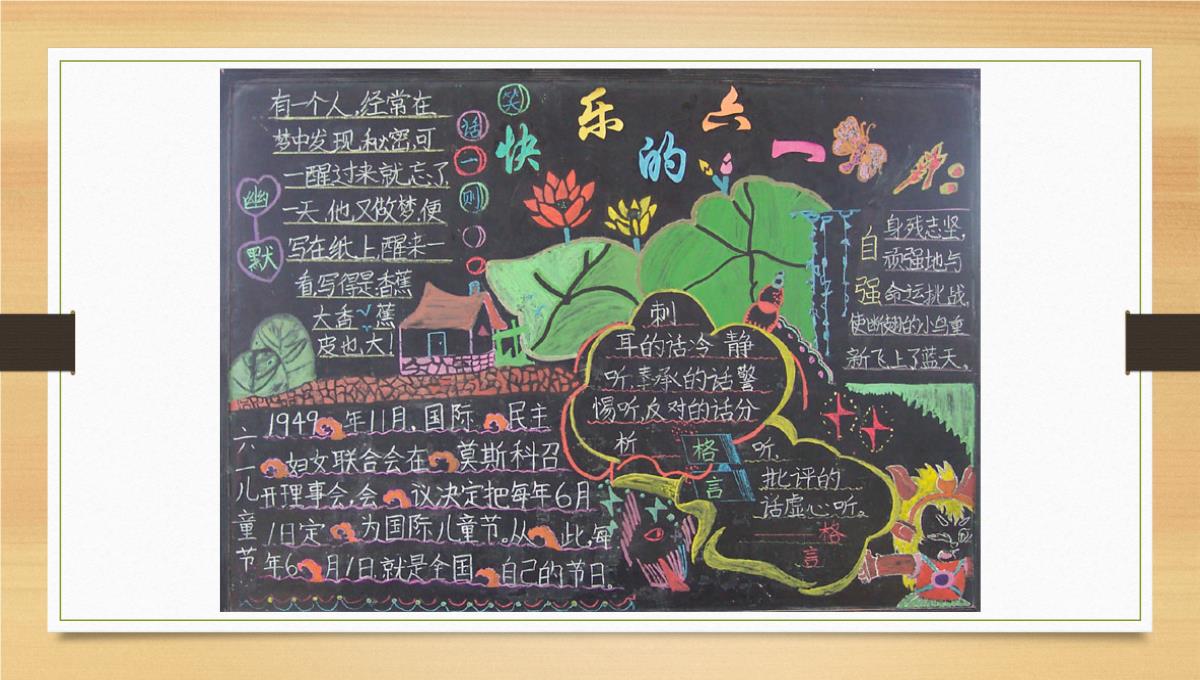 快乐的六一
笑话一则
幽默
有一个人,经常在
梦中发现秘密,可
一醒过来就忘了
一天,他又做梦,便
写在纸上,醒来一
看,写得是:香蕉
大香蕉
皮也大!
自强
身残志坚,
顽强地与
命运挑战,
使断翅的小鸟重
新飞上了蓝天。
刺
耳的话冷静
听,奉承的话警
惕听,反对的话分
析听,
批评的
话虚心听。
——格
言
格
言
六一儿童节
1949年11月,国际民主
妇女联合会在莫斯科召
开理事会,会议决定把每年6月
1日定为国际儿童节。从此,每
年6月1日就是全国自己的节日。